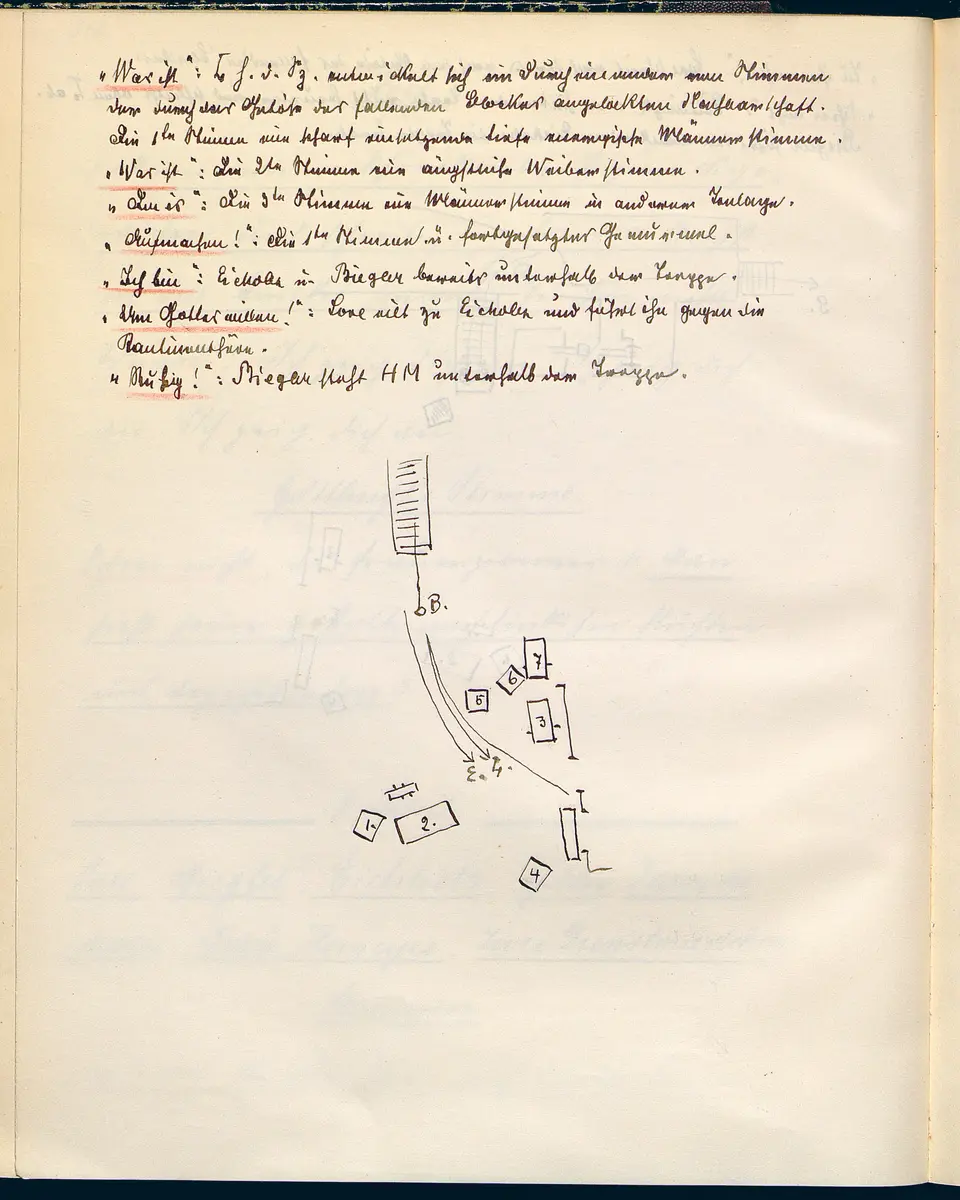 „Was ist": L h. d. Sz. entwickelt sich ein Durcheinander von Stimmen
der durch das Getöse des fallenden Blockes angelockten Nachbarschaft.
Die 1te Stimme eine scharf einsetzende tiefe energische Männerstimme.
„Was ist": Die 2te Stimme eine ängstliche Weiberstimme.
„Da is": Die 3te Stimme eine Männerstimme in anderer Tonlage.
„Aufmachen!": Die 1te Stimme u. fortgesetztes Gemurmel.
„Ich bin": Eicholz u. Biegler bereits unterhalb der Treppe.
„Um Gotteswillen!": Lore eilt zu Eicholz und führt ihn gegen die
Kantinenthüre.
„Ruhig!": Biegler steht HM unterhalb der Treppe.
B.
7
6
5
3
E. L.
1.
2.
4